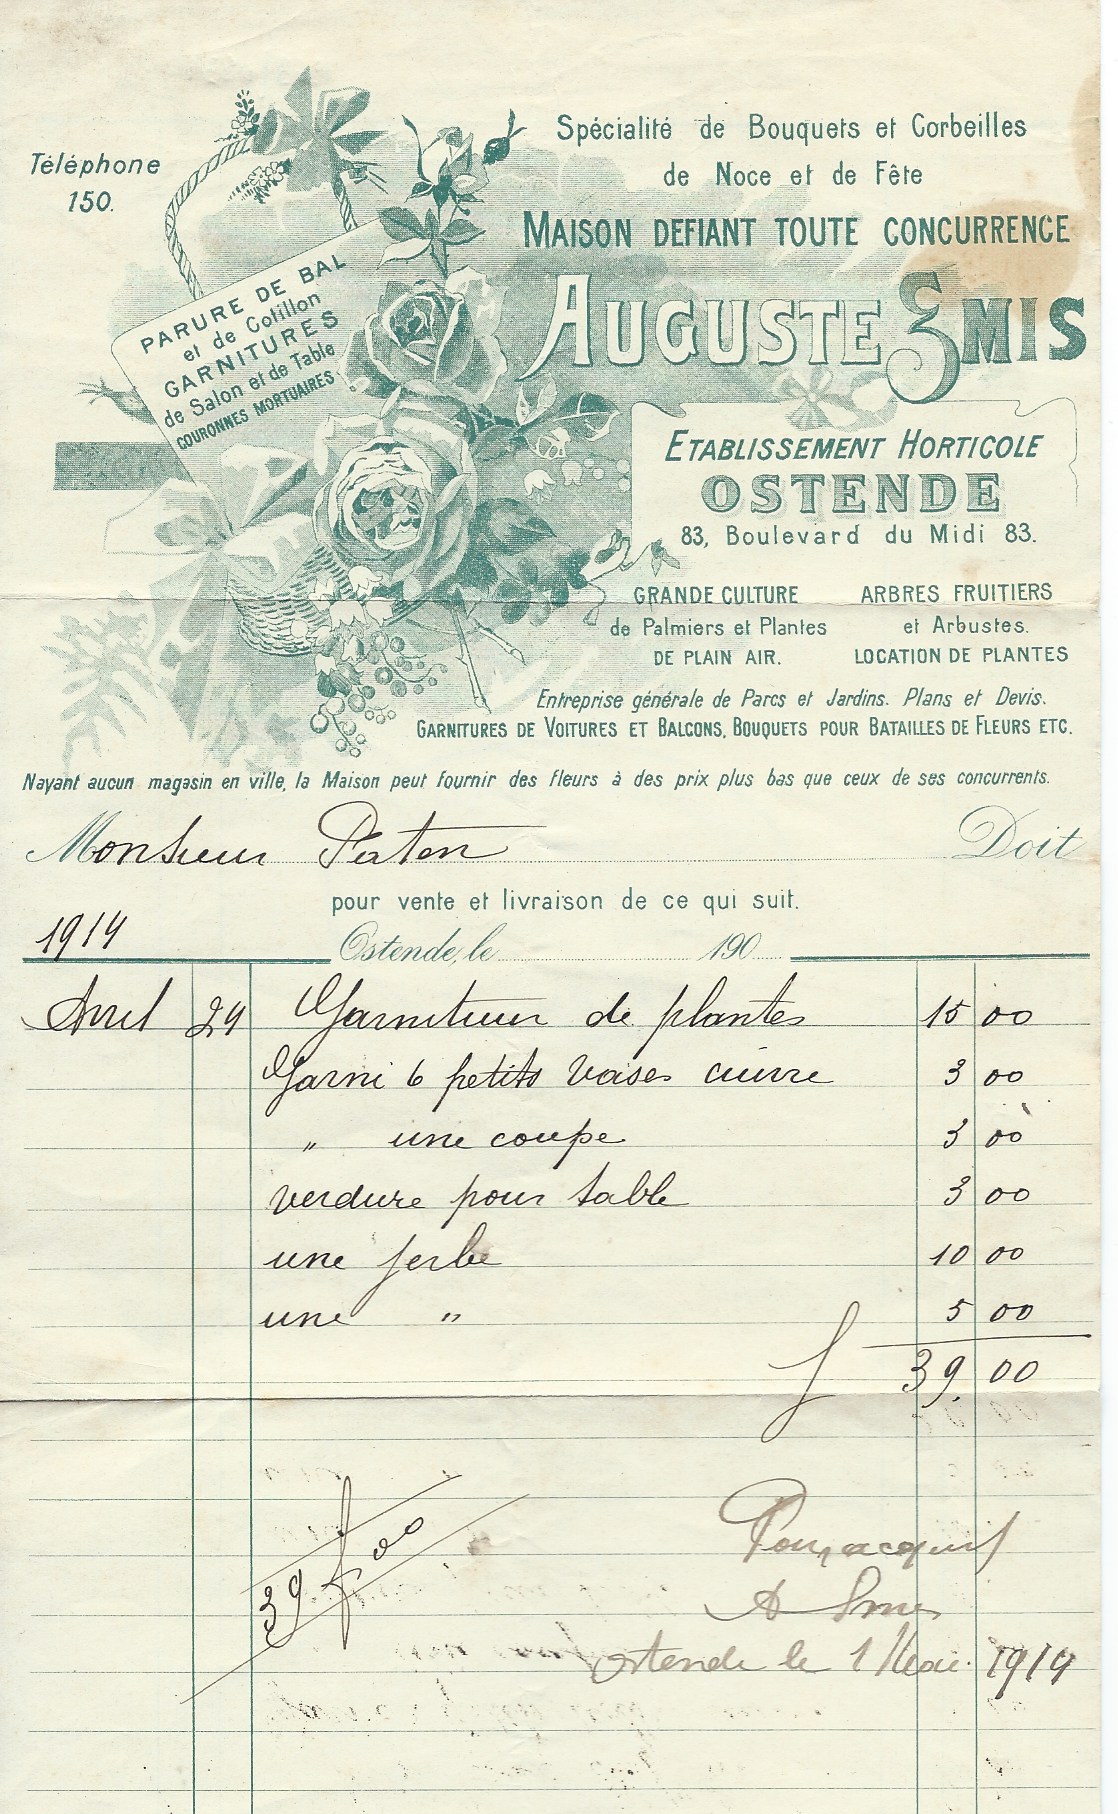 Téléphone
150.
PARURE DE BAL
et de Cotillon
GARNITURES
de Salon et de Table
COURONNES MORTUAIRES
Spécialité de Bouquets et Corbeilles
de Noce et de Fête
MAISON DEFIANT TOUTE CONCURRENCE
AUGUSTE SMIS
ETABLISSEMENT HORTICOLE
OSTENDE
83, Boulevard du Midi 83.
GRANDE CULTURE
de Palmiers et Plantes
DE PLAIN AIR.
ARBRES FRUITIERS
et Arbustes.
LOCATION DE PLANTES
Entreprise générale de Parcs et Jardins. Plans et Devis.
GARNITURES DE VOITURES ET BALCONS, BOUQUETS POUR BATAILLES DE FLEURS ETC.
Nayant aucun magasin en ville, la Maison peut fournir des fleurs à des prix plus bas que ceux de ses concurrents.
Monsieur Doit
pour vente et livraison de ce qui suit.
1914 Ostende, le 190
Avril 29 Garniture de plantes 15 00
Garni 6 petits vases cuivre 3 00
" une coupe 3 00
verdure pour table 3 00
une jerbe 10 00
une " 5 00
f 39.00
39 f 00
Pour acquit
A Smis
ostende le 1 Mai. 1914